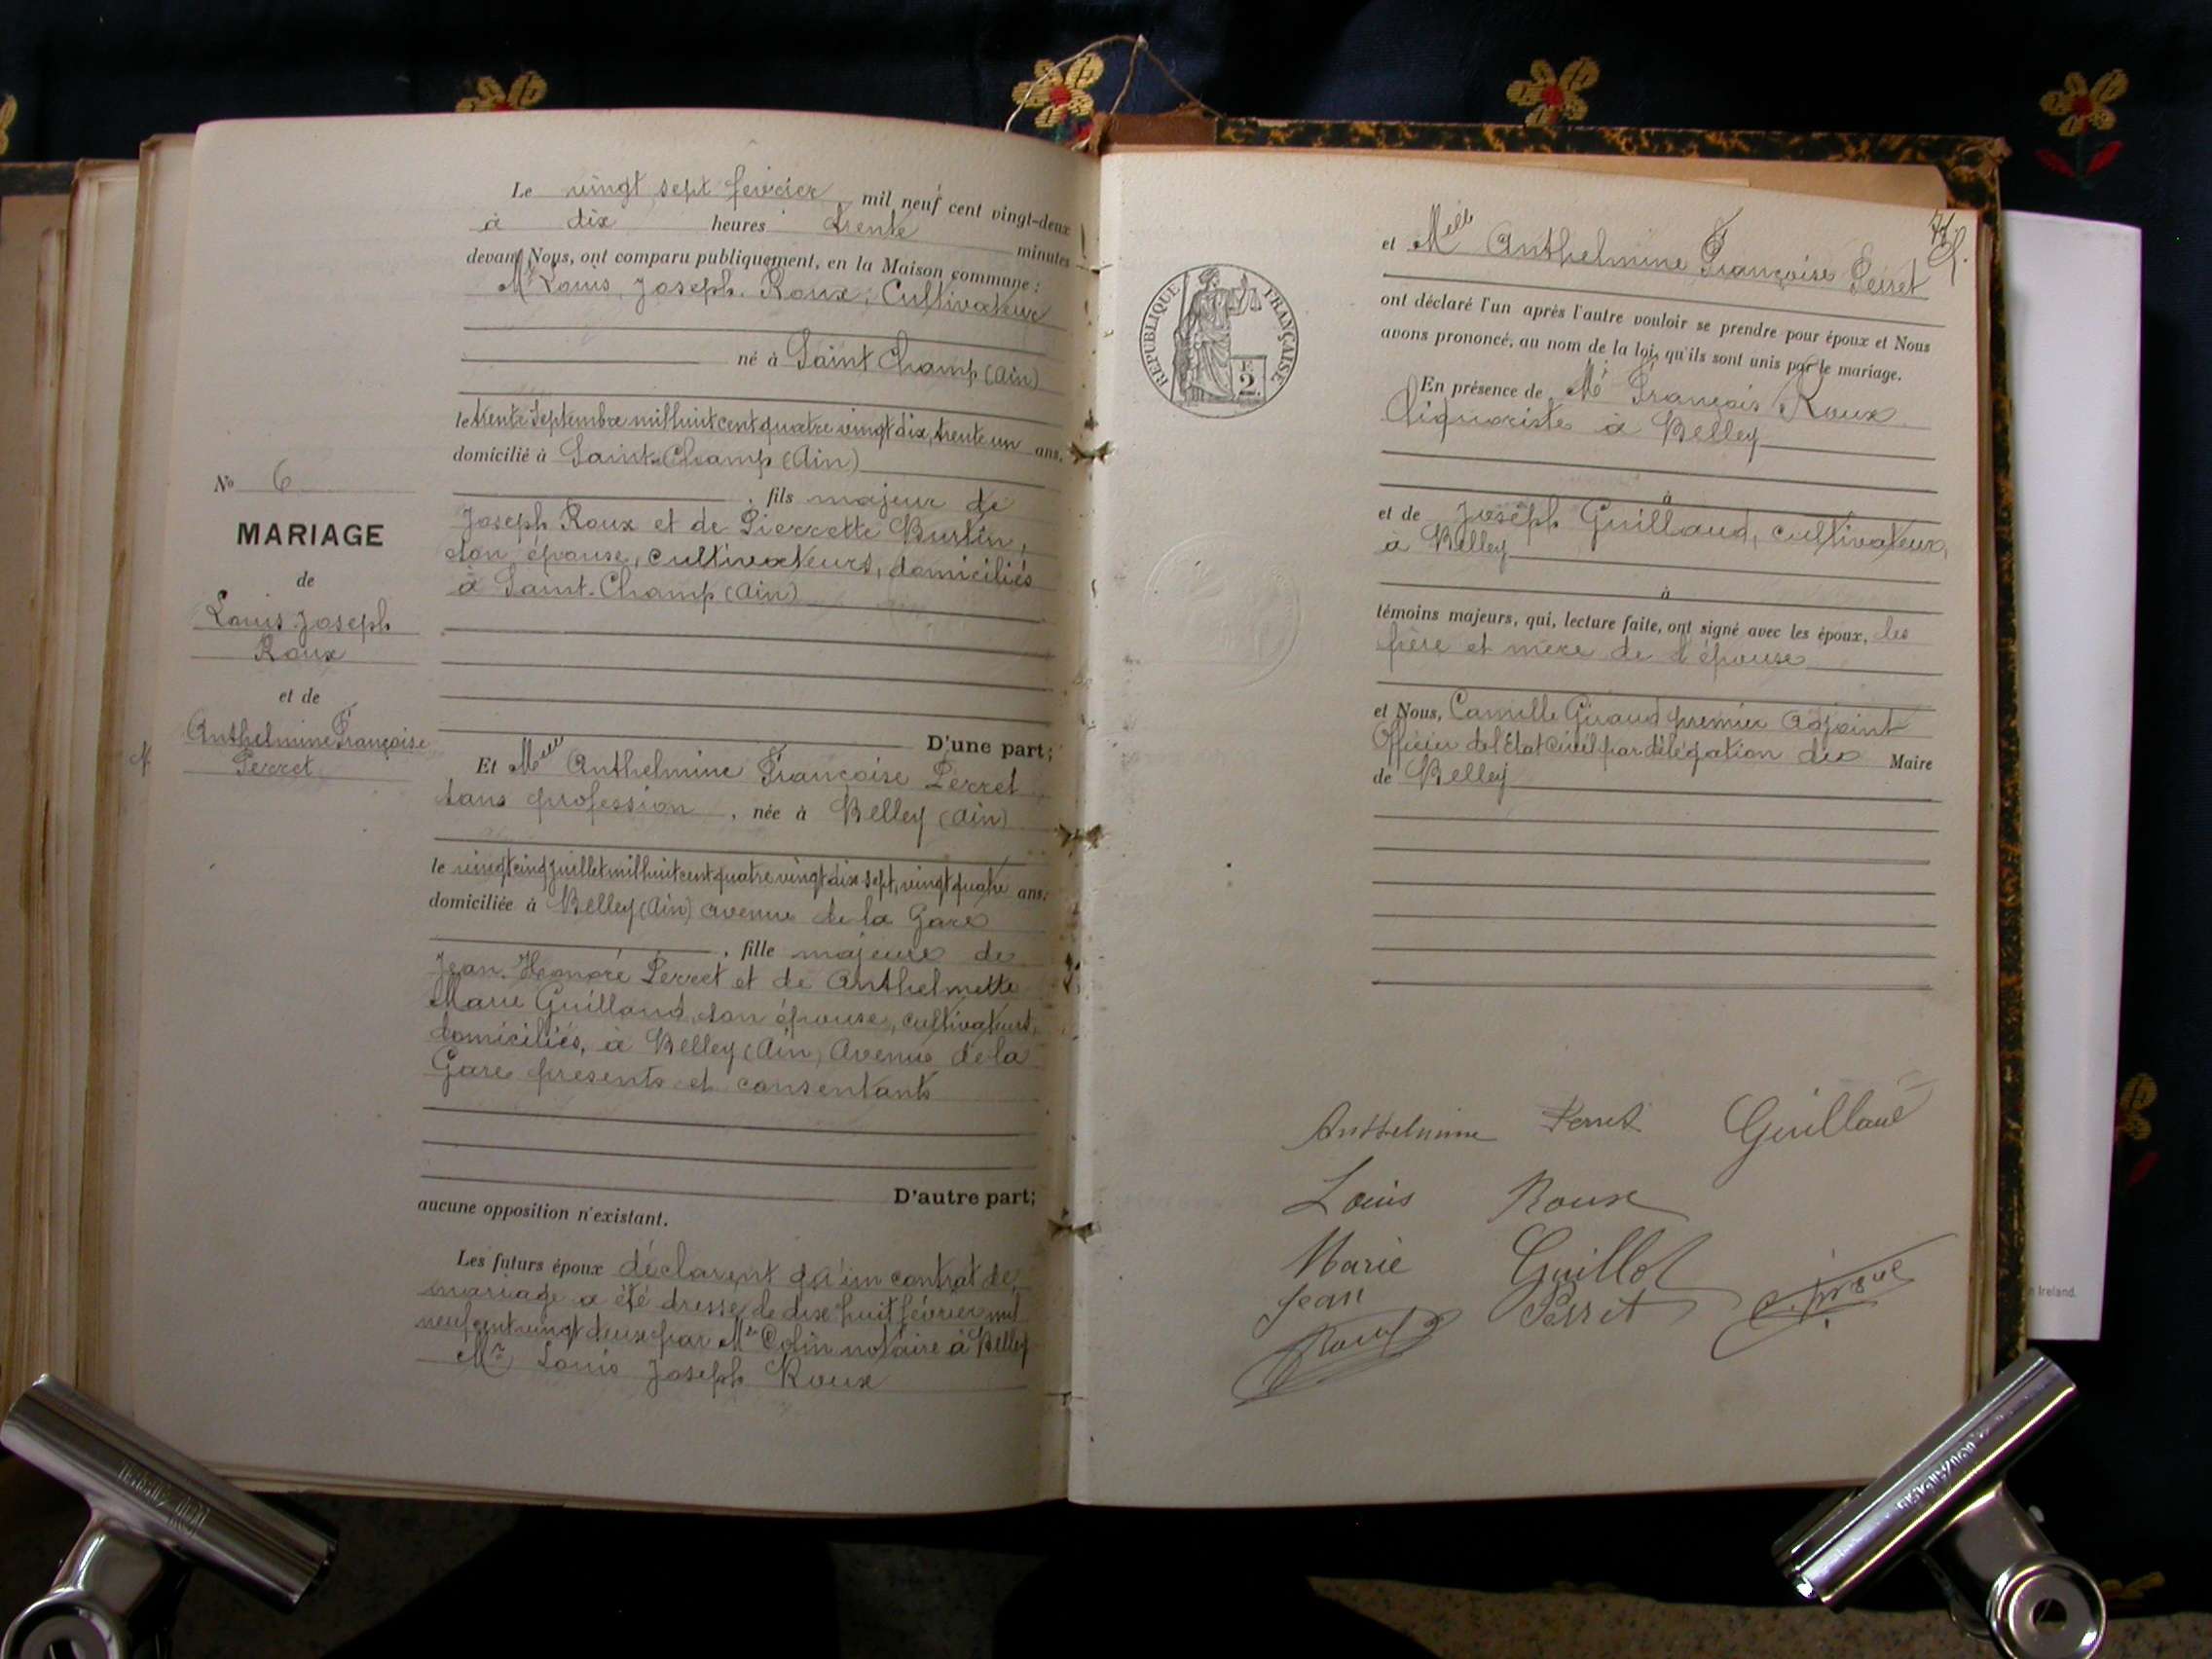 Le vingt sept février, mil neuf cent vingt-deux
à dix heures trente minutes
devant Nous, ont comparu publiquement, en la Maison commune :
Mr Louis, Joseph. Roux, Cultivateur
né à Saint Champ (Ain)
le trente Septembre mil huit cent quatre vingt dix, trente un ans.
domicilié à Saint-Champ (Ain)
, fils majeur de
Joseph Roux et de Pierrette Burtin,
son épouse, cultivateurs, domiciliés
à Saint-Champ (Ain)
No 6
MARIAGE
de
Louis Joseph
Roux
et de
Anthelmine Françoise
Perret
D'une part;
Et Melle Anthelmine Françoise Perret
sans profession, née à Belley (Ain)
le vingt cinq juillet mil huit cent quatre vingt dix sept, vingt quatre ans.
domiciliée à Belley (Ain) avenue de la Gare
, fille majeure de
Jean-Honoré Perret et de Anthelmette
Marie Guillaud, son épouse, cultivateurs,
domiciliés, à Belley (Ain) Avenue de la
Gare présents et consentants
D'autre part;
aucune opposition n'existant.
Les futurs époux déclarent qu'un contrat de
mariage a été dressé le dix huit février mil
neuf cent vingt deux par Me Colin notaire à Belley
Mr Louis Joseph Roux
RÉPUBLIQUE FRANÇAISE
F.
2.
et Melle Anthelmine Françoise Perret
ont déclaré l'un après l'autre vouloir se prendre pour époux et Nous
avons prononcé, au nom de la loi, qu'ils sont unis par le mariage.
En présence de Mr François Roux
liquoriste à Belley
à
et de Joseph Guillaud, cultivateur,
à Belley
à
témoins majeurs, qui, lecture faite, ont signé avec les époux, les
père et mère de l'épouse
et Nous, Camille Giraud premier adjoint
Officier de l'Etat Civil par délégation du Maire
de Belley
Anthelmine Perret Guillaud
Louis Roux
Marie Guillot
Jean Perret
Roux
n Ireland.